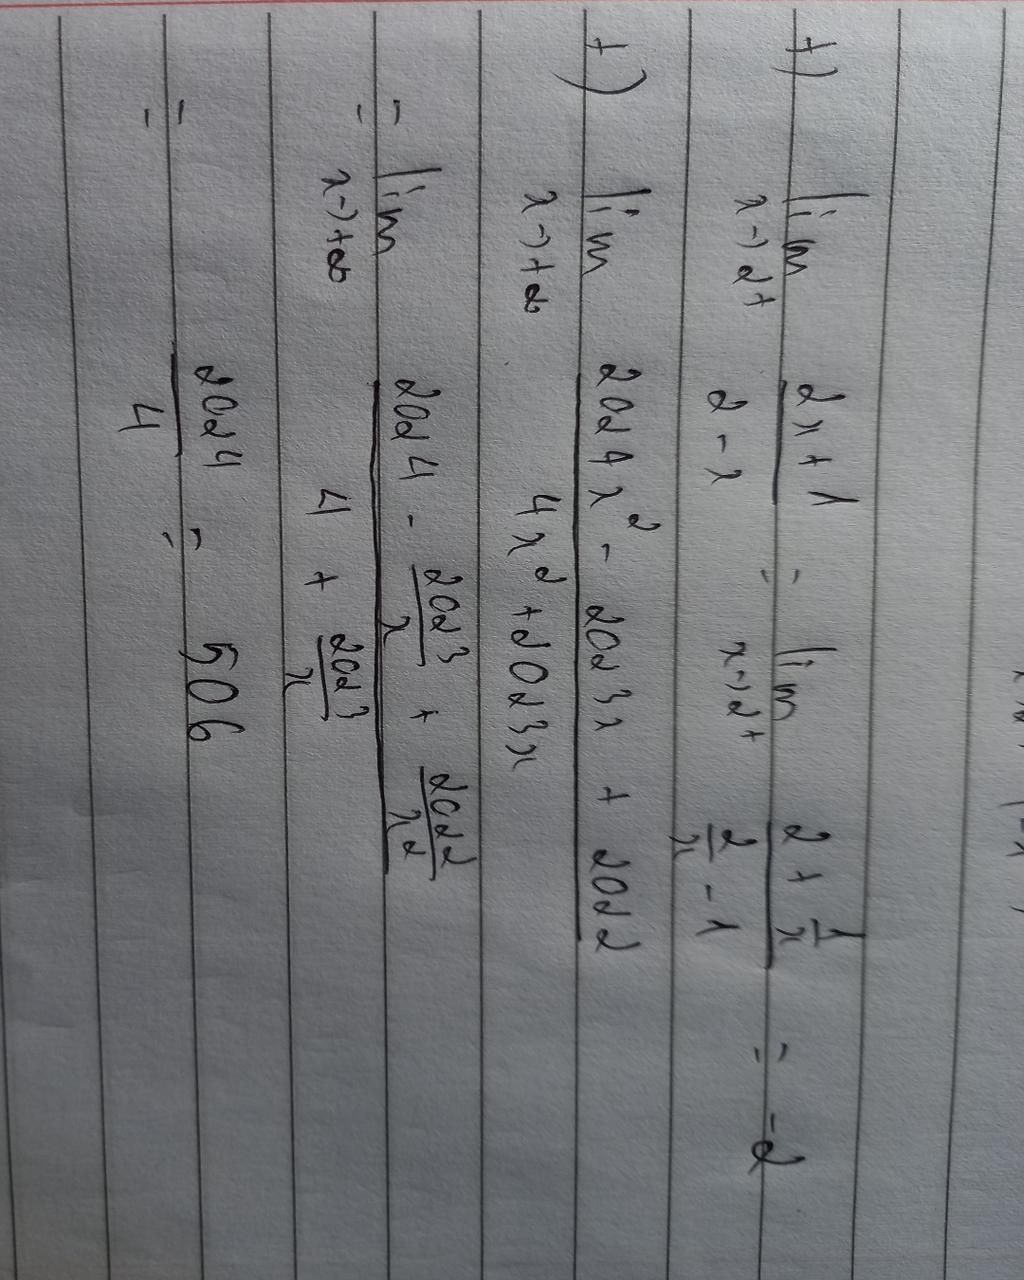 +) lim x→2+ (2x + 1)/(2 - x) = lim x→2+ (2 + 1/x)/(2/x - 1) = -2
+) lim x→+∞ (2024x² - 2023x + 2022)/(4x² + 2023x)
= lim x→+∞ (2024 - 2023/x + 2022/x²)/(4 + 2023/x)
= 2024/4 = 506